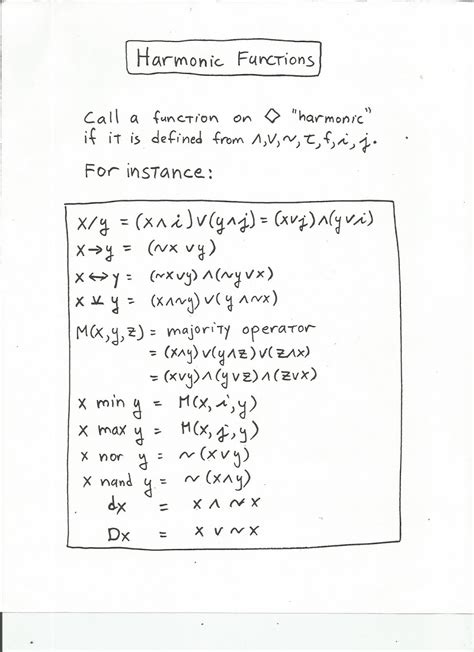 Harmonic Functions
Call a function on ◇ "harmonic"
if it is defined from ∧,∨,~,τ,f,i,j.
For instance:
x/y = (x∧i)∨(y∧j) = (x∨j)∧(y∨i)
x→y = (~x ∨y)
x↔y = (~x∨y)∧(~y∨x)
x ⊻ y = (x∧~y)∨(y∧~x)
M(x,y,z) = majority operator
= (x∧y)∨(y∧z)∨(z∧x)
= (x∨y)∧(y∨z)∧(z∨x)
x min y = M(x,i,y)
x max y = M(x,j,y)
x nor y = ~(x∨y)
x nand y = ~(x∧y)
dx = x ∧ ~x
Dx = x ∨ ~x